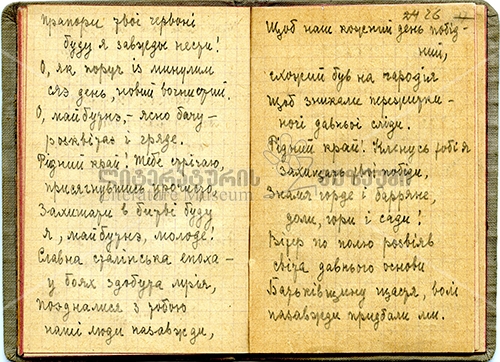 прапори твої червоні
буду я завжди нести!
О, як поруч із минулим
сяє день, новий вогнистий.
О, майбутнє, – ясно бачу –
розквітає і гряде.
Рідний край! Тебе стрічаю,
присягнувшись урочисто,
Захищати в битві буду
я, майбутнє, молоде!
Славна сталінська епоха –
у боях здобута мрія,
Поєдналися з тобою
наші люди назавжди,
24 26
Щоб наш кожний день побід-
ний,
схожий був на чародія
Щоб зникали перешкоди –
ночі давньої сліди.
Рідний край! Клянусь тобі я
Захищать твої побіди,
Знамя горде і багряне,
доли, гори і сади!
Вітер по полю розвіяв
світа давнього основи
Батьківщину щастя, волі
назавжди придбали ми.
ლიტერატურის მუზეუმი
Literature Museum